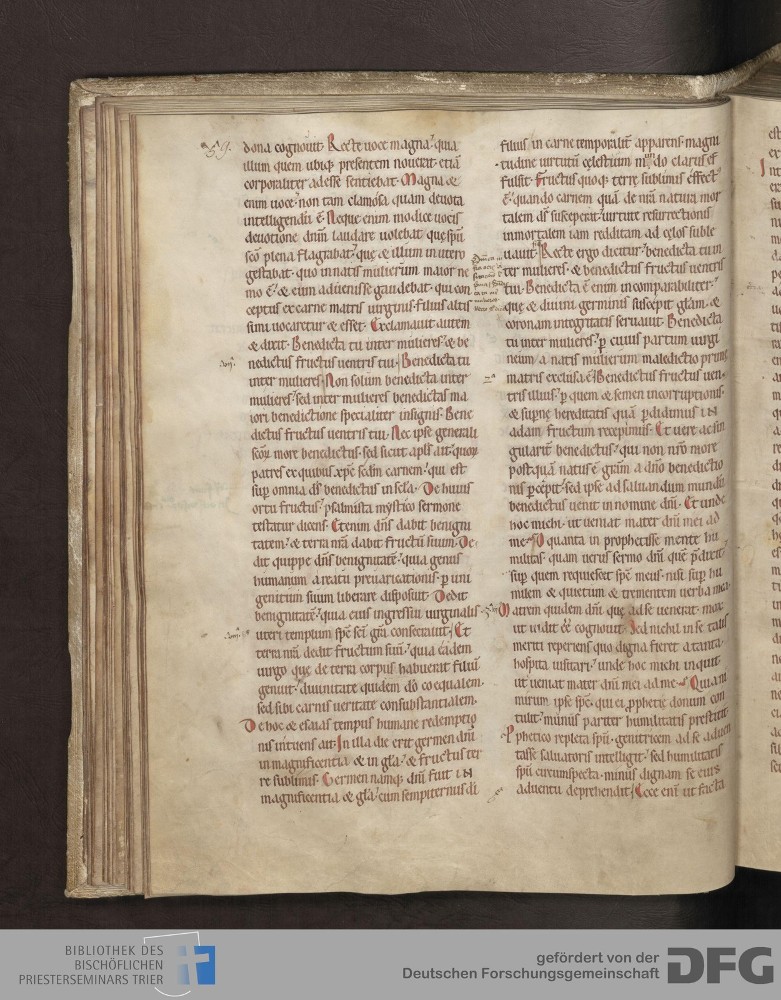 59.
dona cognouit. Recte uoce magna. quia
illum quem ubiq; presentem nouerat. etiā
corporaliter adesse sentiebat. Magna &
enim uoce. non tam clamosa quam deuota
intelligendū ē. Neque enim modice uocis
deuotione dnm laudare uolebat. que spū
sco plena flagrabat. que & illum in utero
gestabat. quo in natis mulierum maior ne
mo ē. & eum aduenisse gaudebat. qui con
ceptus ex carne matris uirginis. filius altis
simi uocaretur & esset. Exclamauit autem
& dixit. Benedicta tu inter mulieres. & be
nedictus fructus uentris tui. Benedicta tu
inter mulieres. Non solum benedicta inter
mulieres. sed inter mulieres benedictas ma
iori benedictione specialiter insignis. Bene
dictus fructus uentris tui. Nec ipse generali
scōꝝ more benedictus. sed sicut apls ait. quoꝝ
patres ex quibus xpc scdm carnem. qui est
sup omnia ds benedictus in scla. De huius
ortu fructus. psalmista mystico sermone
testatur dicens. Etenim dns dabit benigni
tatem. & terra nra dabit fructū suum. De
dit quippe dns benignitatē. quia genus
humanum a reatu preuaricationis. p uni
genitum suum liberare disposuit. Dedit
benignitatē. quia eius ingressui uirginalis
uteri templum spc sci gra consecrauit. Et
terra nra dedit fructum suū. quia eadem
uirgo que de terra corpus habuerat. filiū
genuit. diuinitate quidem do coequalem.
sed sibi carnis ueritate consubstantialem.
De hoc & esaias tempus humane redemptio
nis intuens ait. In illa die erit germen dni
in magnificentia & in gla. & fructus ter
re sublimis. Germen namq; dni fuit in
magnificentia & gla. cum sempiternus di
filius in carne temporalit apparens. magni
tudine uirtutū celestium mundo clarus ef
fulsit. Fructus quoq; terre sublimis effect'
ē. quando carnem quā de nra natura mor
talem ds susceperat. uirtute resurrectionis
inmortalem iam redditam ad celos suble
uauit. Recte ergo dicitur. benedicta tu in
ter mulieres. & benedictus fructus uentris
tui. Benedicta ē enim incomparabiliter.
que & diuini germinis suscepit glam. &
coronam integritatis seruauit. Benedicta
tu inter mulieres. p cuius partum uirgi
neum a natis mulierum maledictio prime
matris exclusa ē. Benedictus fructus uen
tris illius. p quem & semen incorruptionis.
& supne hereditatis quā pdidimus in
adam fructum recepimus. Et uere ac sin
gularit benedictus. qui non nro more
postquā natus ē gram a dno benedictio
nis pcepit. sed ipse ad saluandum mundū
benedictus uenit in nomine dni. Et unde
hoc michi. ut ueniat mater dni mei ad
me. O quanta in prophetisse mente hu
militas. quam uerus sermo dni. que pdixit.
sup quem requiescet spc meus. nisi sup hu
milem & quietum & trementem uerba mea.
Matrem quidem dni que ad se uenerat. mox
ut uidit ēē cognouit. Sed nichil in se talis
meriti reperiens quo digna fieret a tanta
hospita uisitari. unde hoc michi inquit
ut ueniat mater dni mei ad me. Quia ni
mirum ipse spc. qui ei pphetie donum con
tulit. munus pariter humilitatis prestitit.
Pphetico repleta spū. genitricem ad se aduen
tasse saluatoris intelligit. sed humilitatis
spū circumspecta. minus dignam se eius
aduentu deprehendit. Ecce eni ut facta
BIBLIOTHEK DES
BISCHÖFLICHEN
PRIESTERSEMINARS TRIER
gefördert von der
Deutschen Forschungsgemeinschaft
DFG